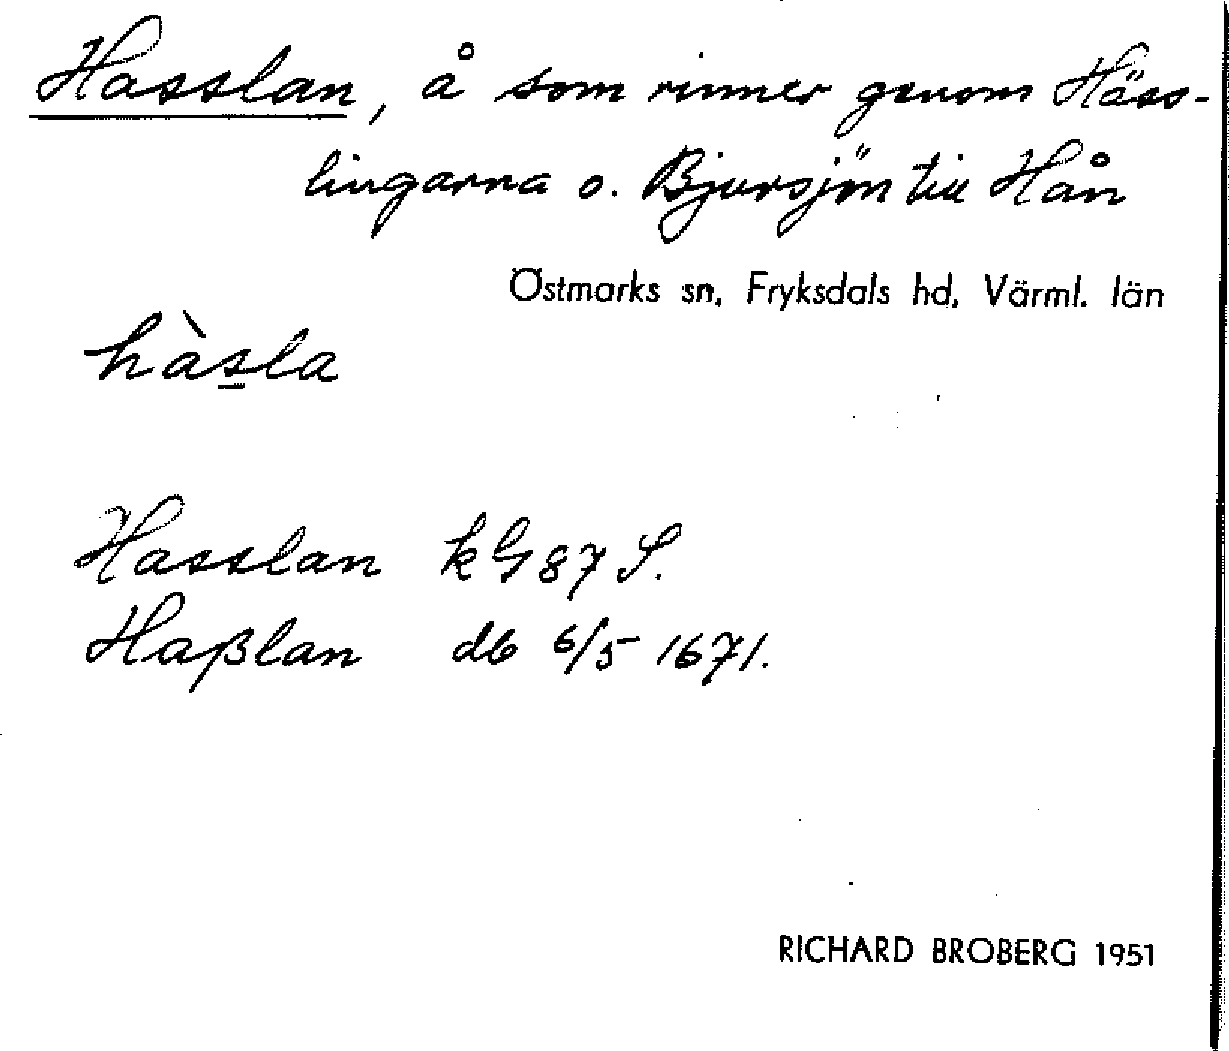 Hasslan, å som rinner genom Häss-
lingarna o. Bjursjön till Hån
Östmarks sn, Fryksdals hd, Värml. län
hàs̠la
Hasslan kG 87 S.
Haßlan db 6/5 1671.
RICHARD BROBERG 1951